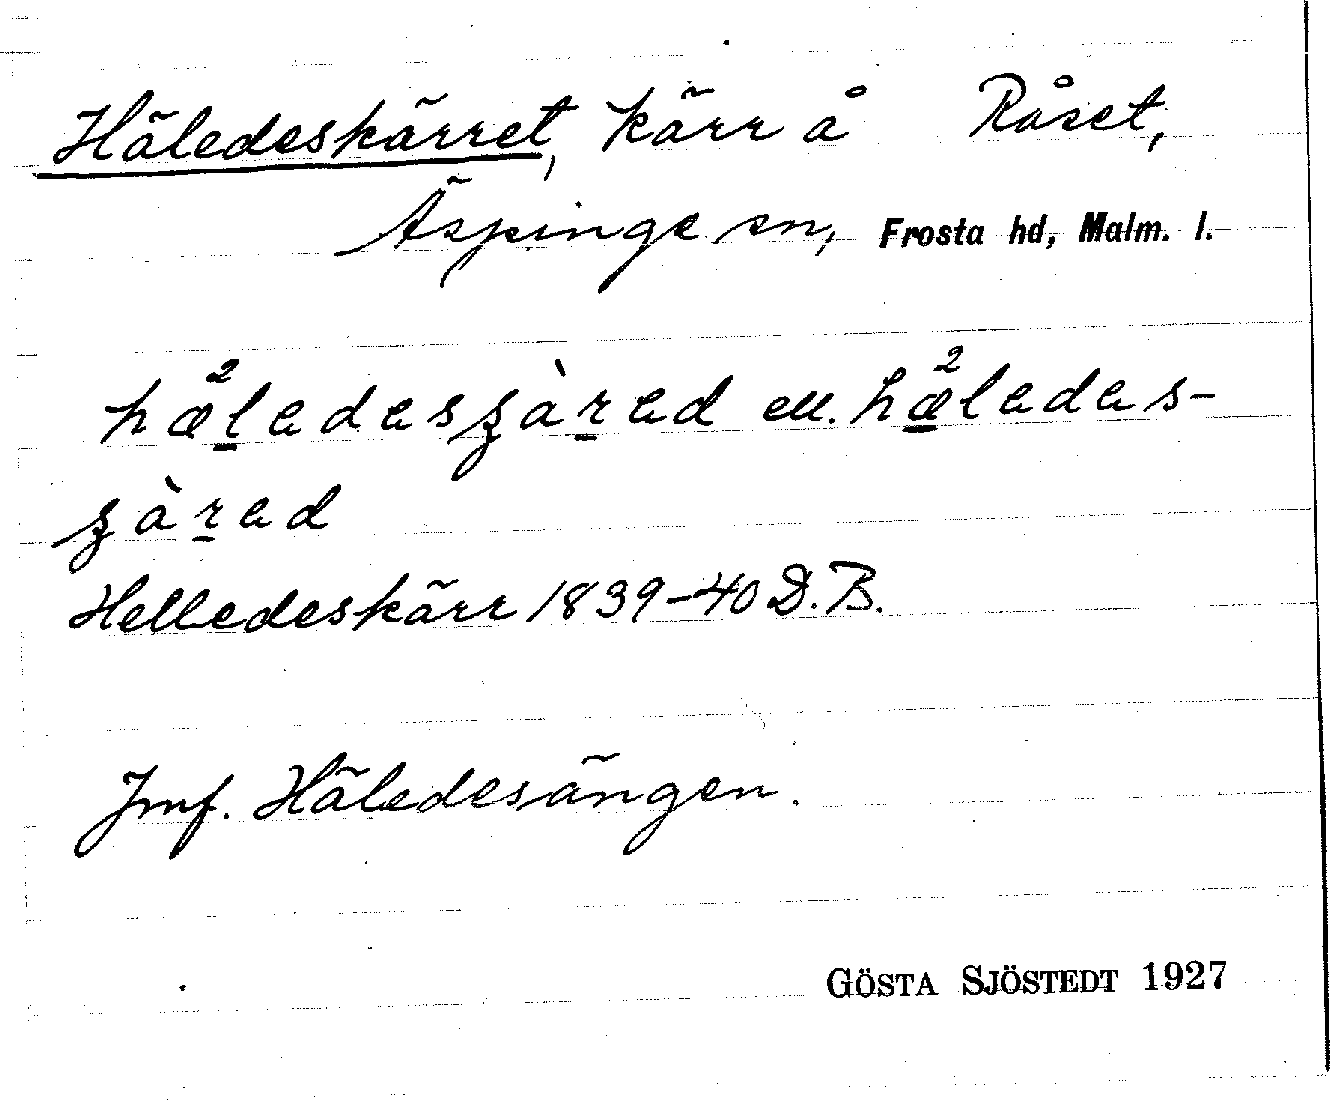 Häledeskärret, kärr å Råset,
Äspinge sn, Frosta hd, Malm. l.
hæ²ledesʒàred ell. hæ²ledes-
ʒàred
Helledeskärr 1839-40 D.B.
Jmf. Häledesängen.
GÖSTA SJÖSTEDT 1927